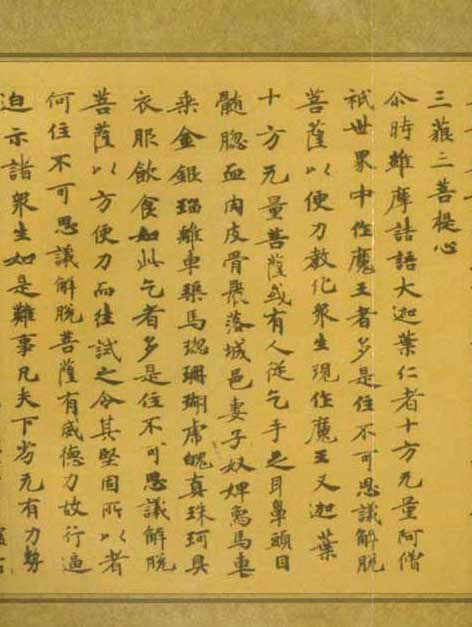 三藐三菩提心
尒時維摩詰語大迦葉仁者十方无量阿僧
祇世界中作魔王者多是住不可思議解脫
菩薩以便力教化衆生現作魔王又迦葉
十方无量菩薩或有人從乞手足耳鼻頭目
髓腦血肉皮骨聚落城邑妻子奴婢馬車
乘金銀瑠離車璖馬瑙珊瑚虎魄真珠珂貝
衣服飲食如此乞者多是住不可思議解脫
菩薩以方便力而往試之令其堅固所以者
何住不可思議解脫菩薩有威德力故行逼
迫示諸衆生如是難事凡夫下劣无有力勢